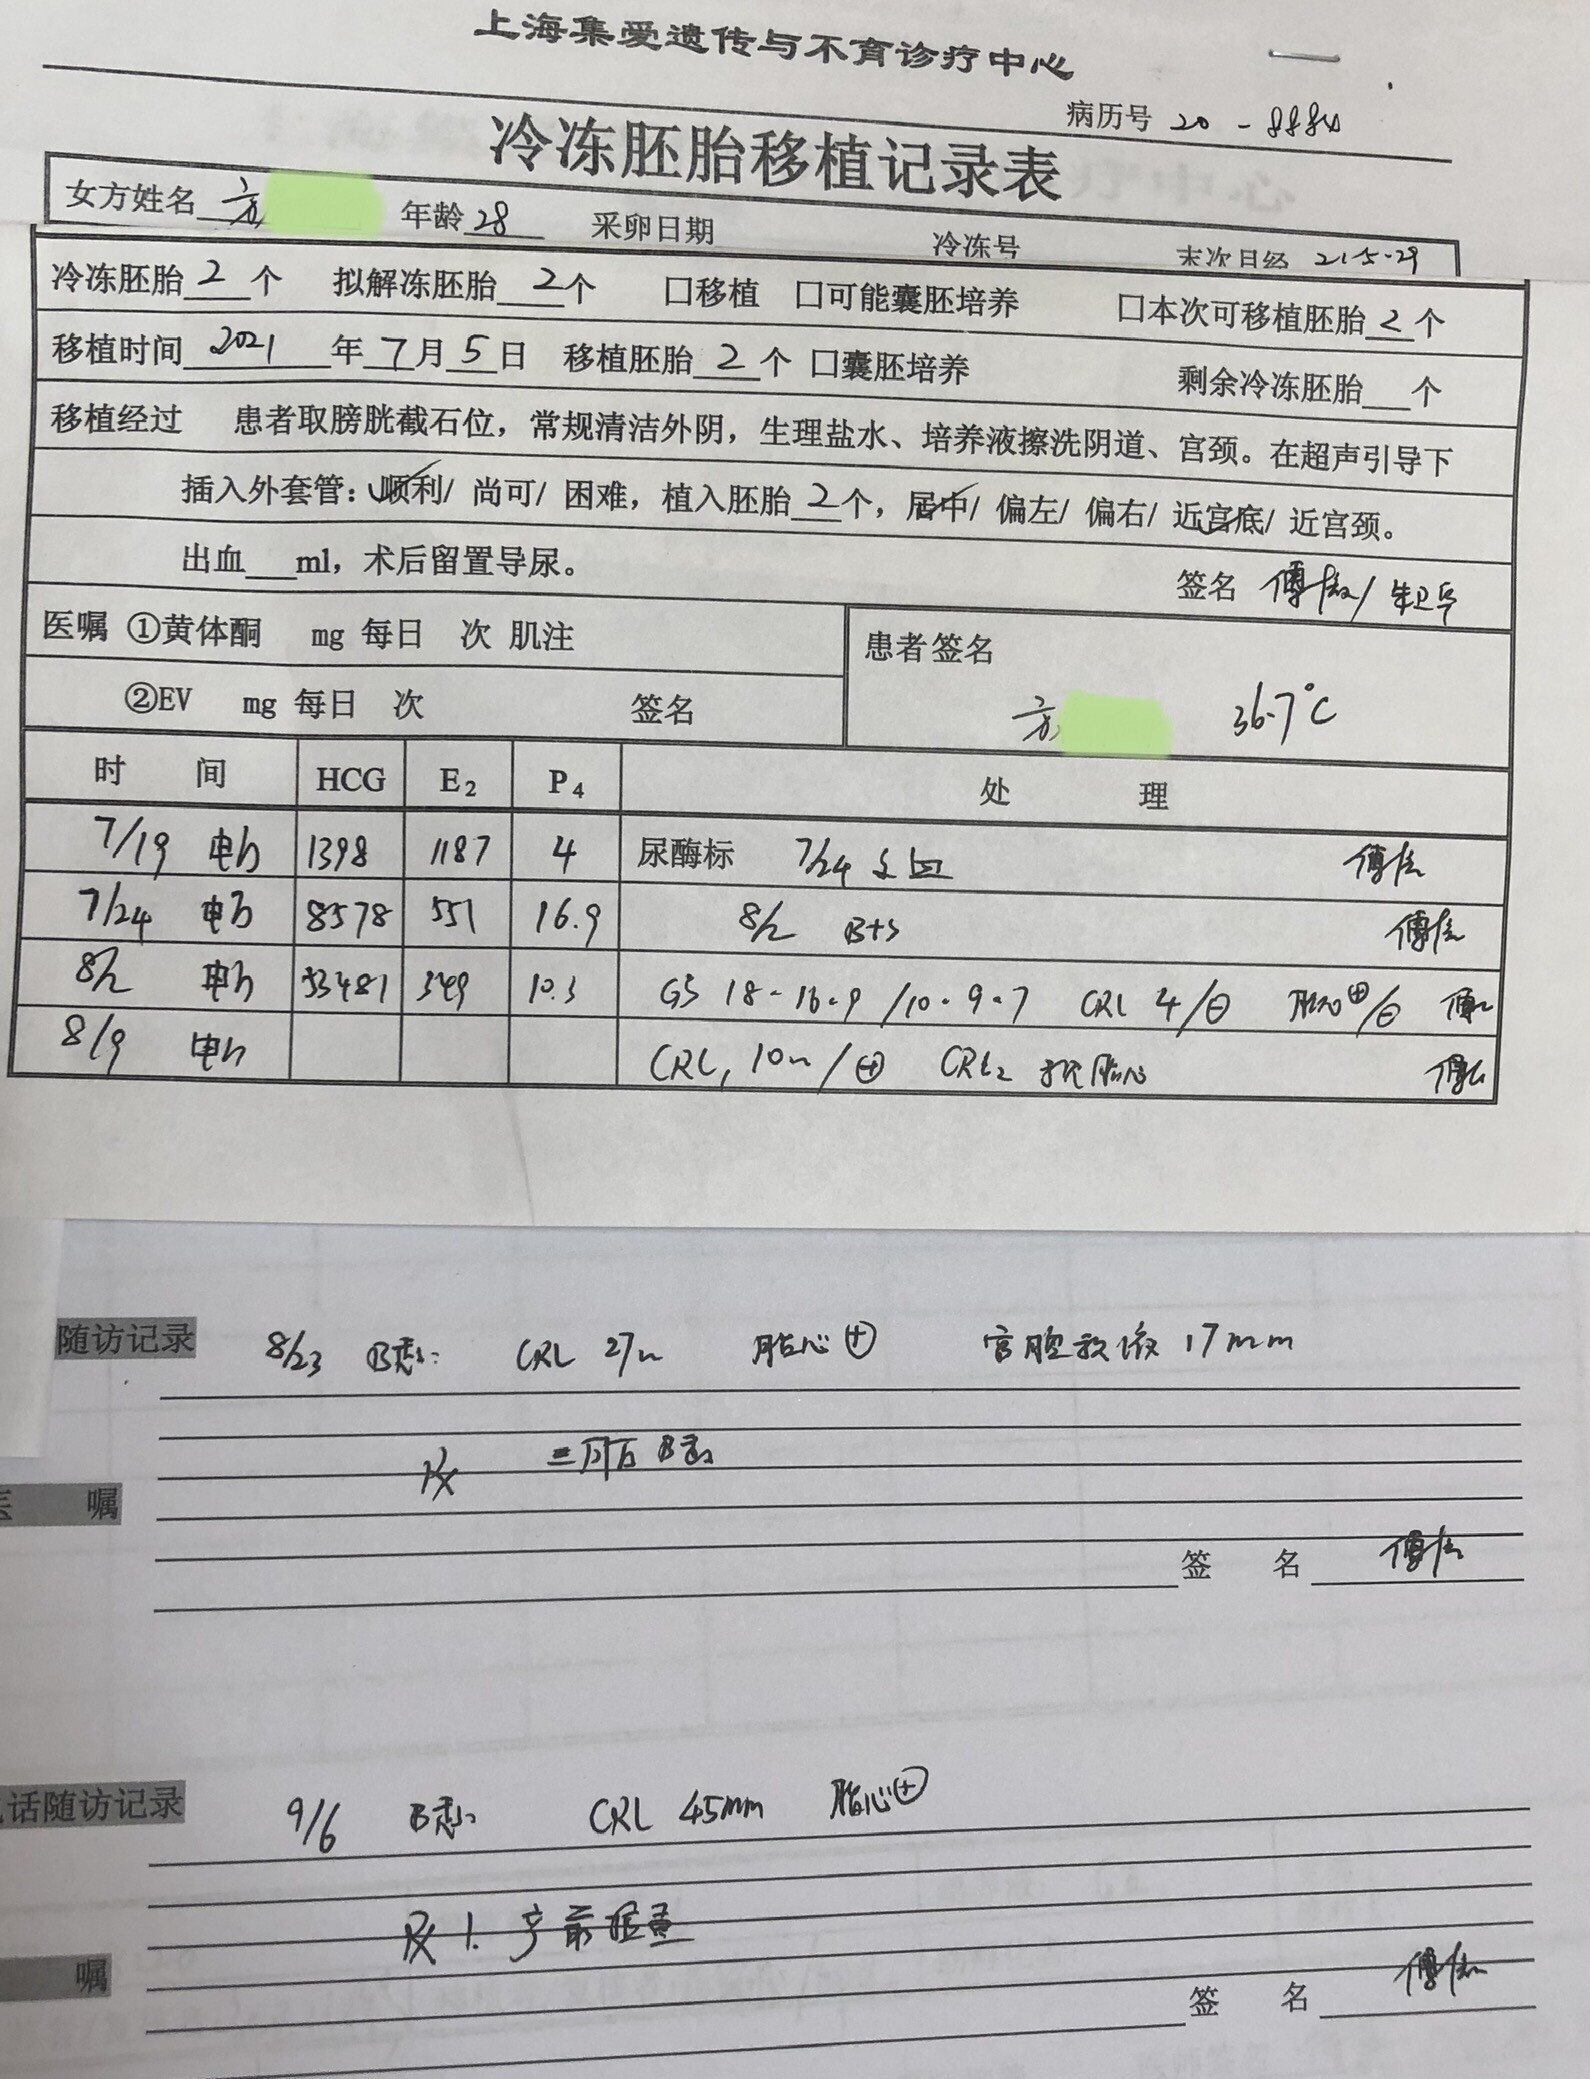 上海集爱遗传与不育诊疗中心
病历号 20 - 8884
冷冻胚胎移植记录表
女方姓名 方 年龄 28 采卵日期 冷冻号 末次月经 21.5.29
冷冻胚胎 2 个 拟解冻胚胎 2 个 口移植 口可能囊胚培养 口本次可移植胚胎 2 个
移植时间 2021 年 7 月 5 日 移植胚胎 2 个 口囊胚培养 剩余冷冻胚胎 个
移植经过 患者取膀胱截石位，常规清洁外阴，生理盐水、培养液擦洗阴道、宫颈。在超声引导下
插入外套管：顺利/ 尚可/ 困难，植入胚胎 2 个，居中/ 偏左/ 偏右/ 近宫底/ 近宫颈。
出血 ml，术后留置导尿。
签名
医嘱 ①黄体酮 mg 每日 次 肌注
患者签名
②EV mg 每日 次 签名
方 36.7℃
时 间 HCG E₂ P₄ 处 理
7/19 1398 1187 4 尿酶标 7/24
7/24 8578 551 16.9 8/2
8/2 53481 349 10.3 GS 18-16-9 / 10-9-7 CRL 4/⊖ 胎心⊕/⊖
8/9 CRL₁ 10 /⊕ CRL₂ 胎心
随访记录 8/23 B超: CRL 27 胎心⊕ 宫腔积液 17mm
Rx 二周后 B超
嘱
签 名
话随访记录 9/6 B超: CRL 45mm 胎心⊕
Rx 1. 产前检查
嘱
签 名